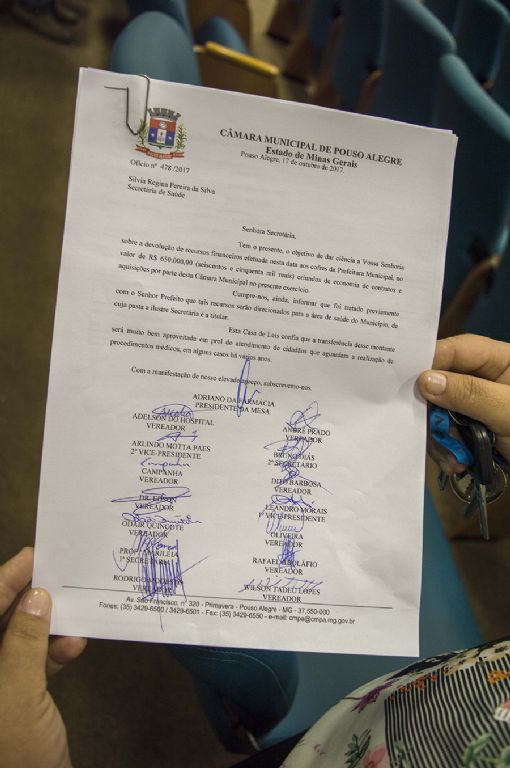 CÂMARA MUNICIPAL DE POUSO ALEGRE
Estado de Minas Gerais
Pouso Alegre, 17 de outubro de 2017.
Ofício nº 478/2017
Silvia Regina Pereira da Silva
Secretária de Saúde
Senhora Secretária,
Tem o presente, o objetivo de dar ciência a Vossa Senhoria
sobre a devolução de recursos financeiros efetuada nesta data aos cofres da Prefeitura Municipal, no
valor de R$ 650.000,00 (seiscentos e cinquenta mil reais) oriundos de economia de contratos e
aquisições por parte desta Câmara Municipal no presente exercício.
Cumpre-nos, ainda, informar que foi tratado previamente
com o Senhor Prefeito que tais recursos serão direcionados para a área de saúde do Município, da
cuja pasta a ilustre Secretária é a titular.
Esta Casa de Leis confia que a transferência desse montante
será muito bem aproveitada em prol do atendimento de cidadãos que aguardam a realização de
procedimentos médicos, em alguns casos há vários anos.
Com a manifestação de nosso elevado apreço, subscrevemo-nos.
ADRIANO DA FARMÁCIA
PRESIDENTE DA MESA
ADELSON DO HOSPITAL
VEREADOR
ANDRÉ PRADO
VEREADOR
ARLINDO MOTTA PAES
2º VICE-PRESIDENTE
BRUNO DIAS
2º SECRETÁRIO
CAMPANHA
VEREADOR
DITO BARBOSA
VEREADOR
DR. EDSON
VEREADOR
LEANDRO MORAIS
VICE-PRESIDENTE
ODAIR QUINCOTE
VEREADOR
OLIVEIRA
VEREADOR
RAFAEL ABOLÁFIO
VEREADOR
RODRIGO
VEREADOR
WILSON TADEU LOPES
VEREADOR
Av. São Francisco, nº 320 - Primavera - Pouso Alegre - MG - 37.550-000
Fones: (35) 3429-6500 / 3429-6501 - Fax: (35) 3429-6550 - e-mail: cmpa@cmpa.mg.gov.br